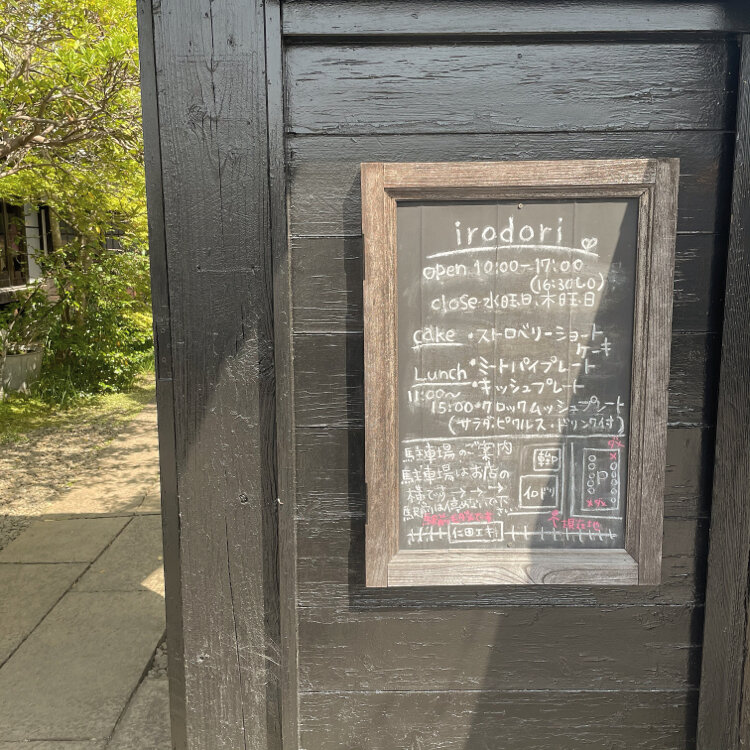 irodori
open 10:00-17:00
(16:30LO)
close 水曜日、木曜日
cake ・ストロベリーショート
ケーキ
Lunch ・ミートパイプレート
11:00〜 ・キッシュプレート
15:00 ・クロックムッシュプレート
(サラダ・ピクルス・ドリンク付)
駐車場のご案内
駐車場はお店の
横です→→→
駅前は停めないで下
さい
イロドリ
P
現在地
仁田エキ